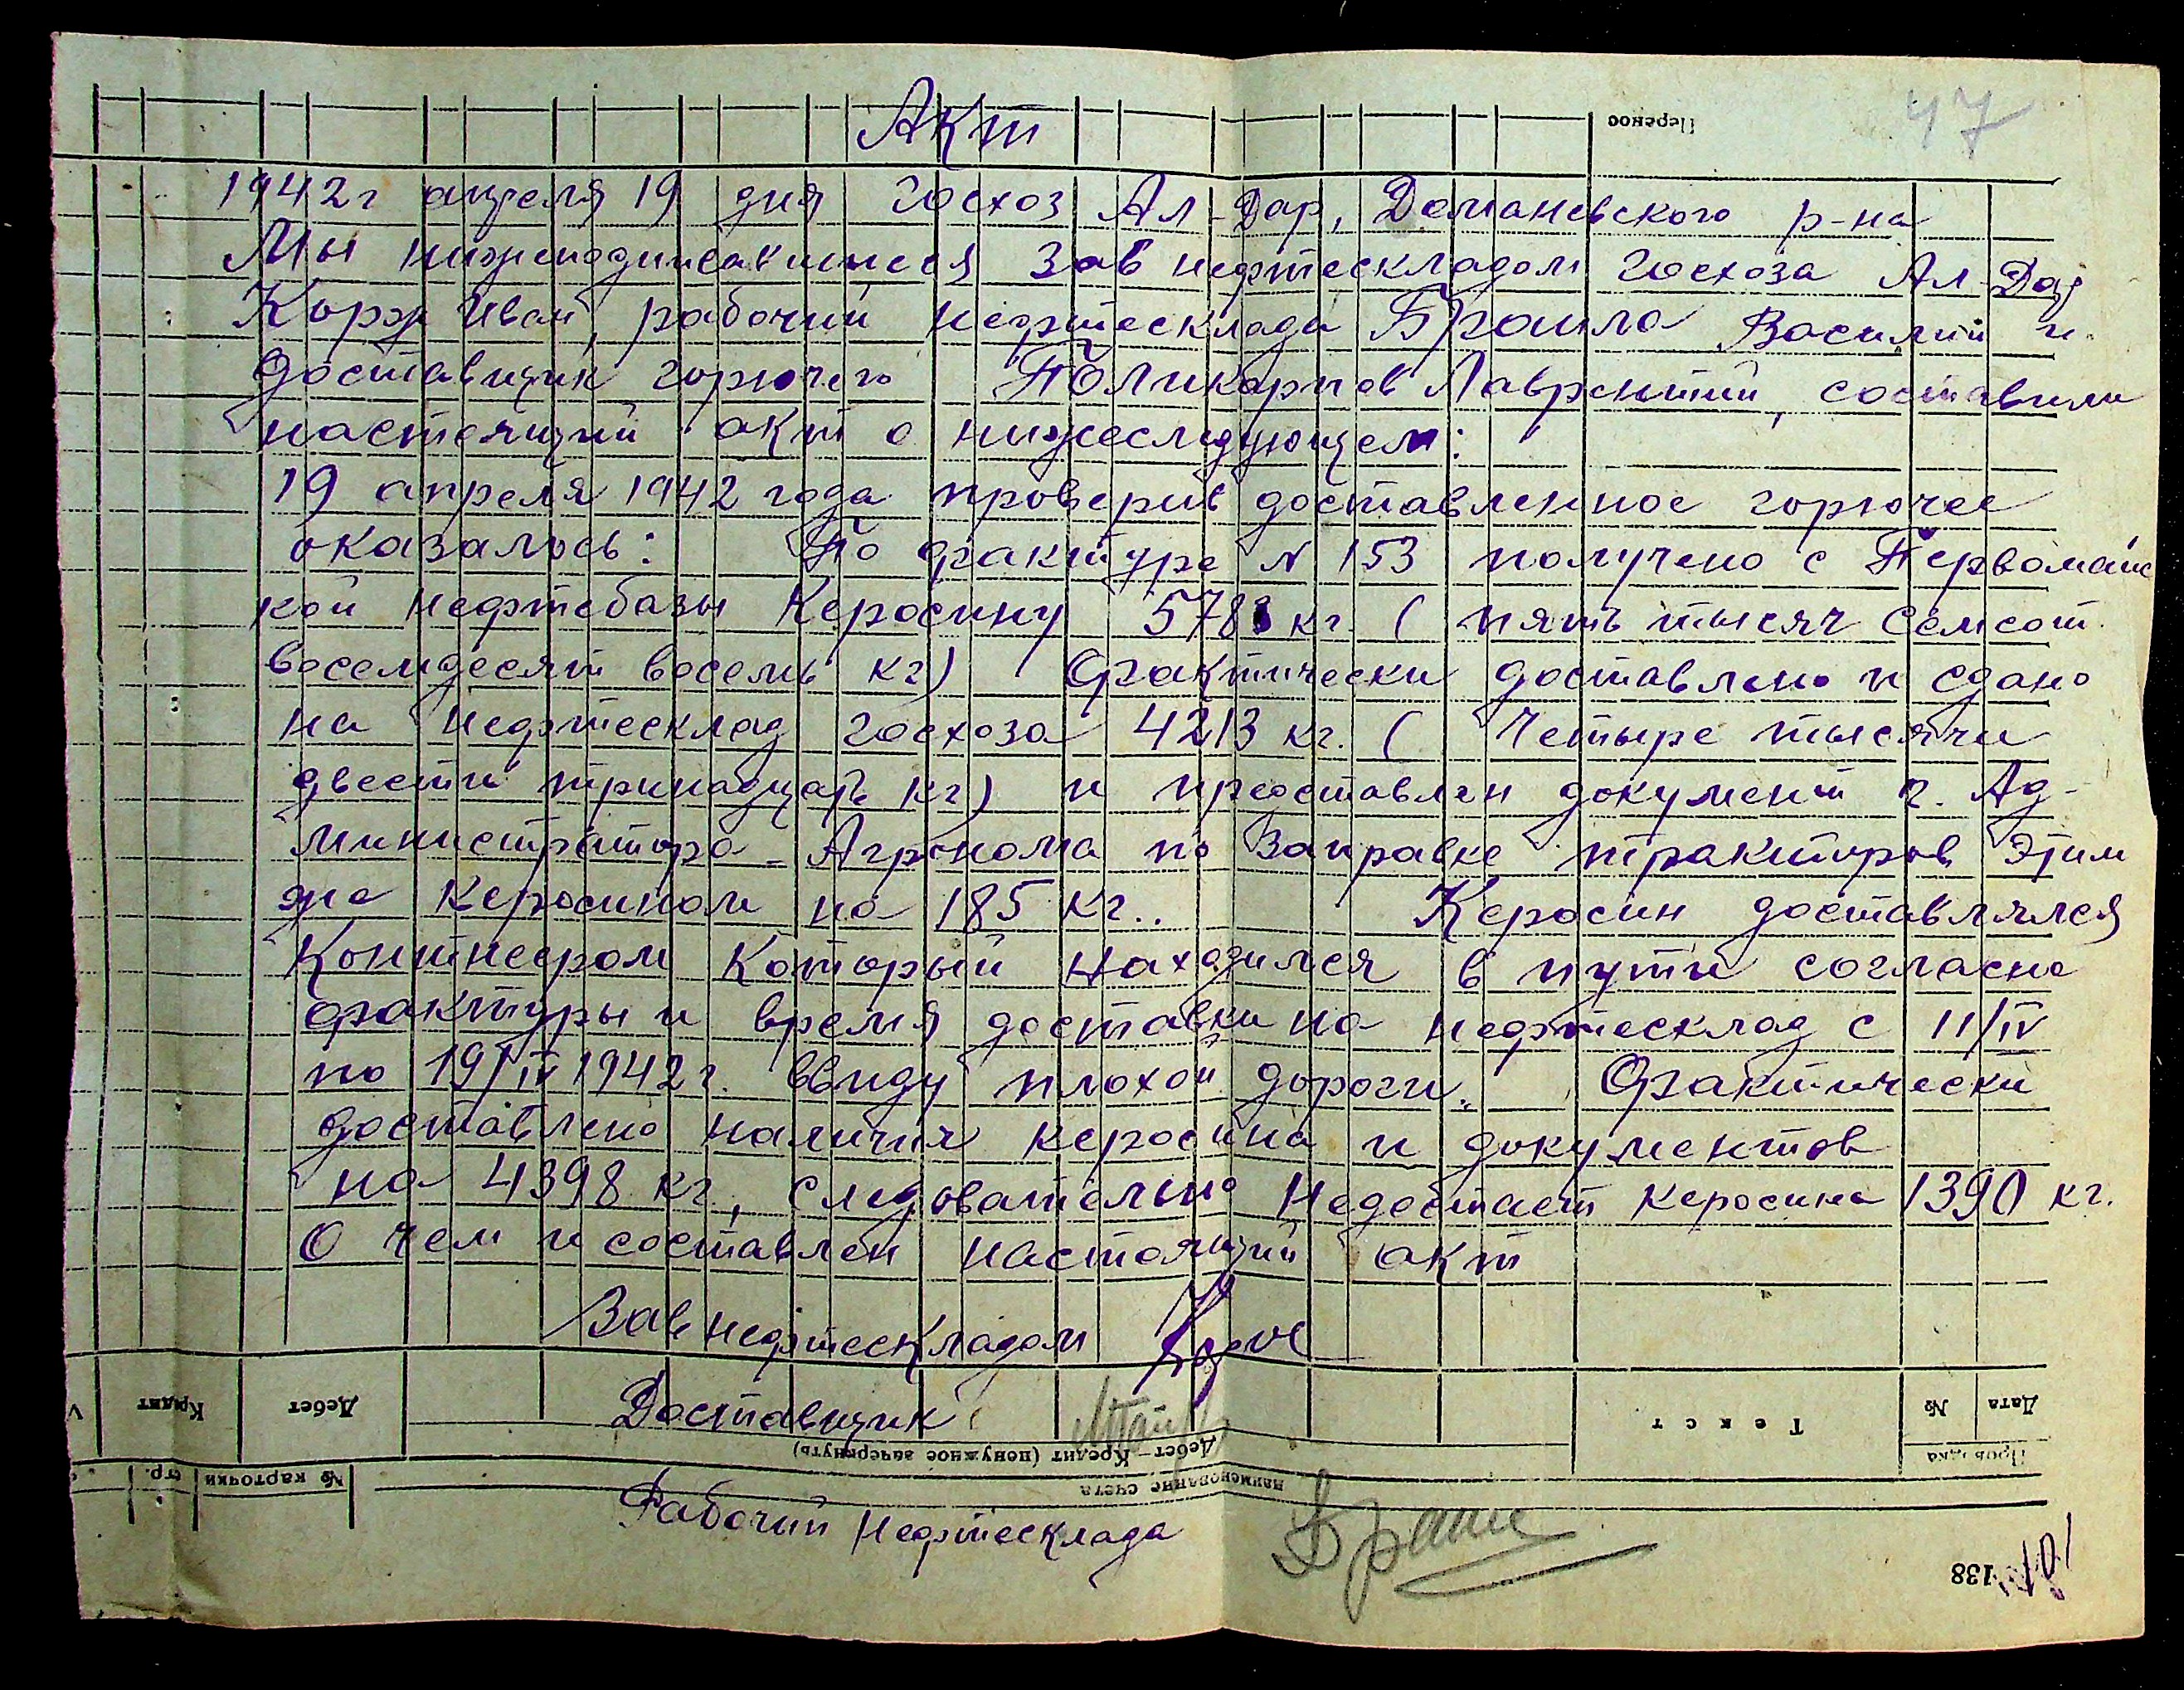 47
Акт
1942г апреля 19 дня госхоз Ал-Дар, Доманевского р-на
Мы нижеподписавшиеся Зав нефтескладом госхоза Ал-Дар
Корж Иван, рабочий нефтесклада Браило Василий и
доставщик горючего Поликарпов Лаврентий, составили
настоящий акт о нижеследующем:
19 апреля 1942 года проверив доставленное горючее
оказалось: По фактуре N 153 получено с Первомайс
кой нефтебазы Керосину 5788 кг (пять тысяч семсот
восемдесят восемь кг) Фактически доставлено и сдано
на нефтесклад госхоза 4213 кг. (Четыре тысячи
двести тринадцать кг) и предоставлен документ г. Ад-
министратора-Агронома по Заправке тракторов Этим
же керосином на 185 кг..  Керосин доставлялся
Который находился в пути согласно
фактуры и время доставки на нефтесклад с 11/IV
по 19/IV 1942г. ввиду плохой дороги. Фактически
доставлено наличия керосина и документов
на 4398 кг., следовательно Недостает керосина 1390 кг.
О чем и составлен настоящий акт
Зав нефтескладом
Доставщик
Рабочий Нефтесклада
Перенос
138
Дата
№
Текст
Дебет
Кредит
Дебет—Кредит (ненужное зачеркнуть)
наименование счета
№ карточки
стр.